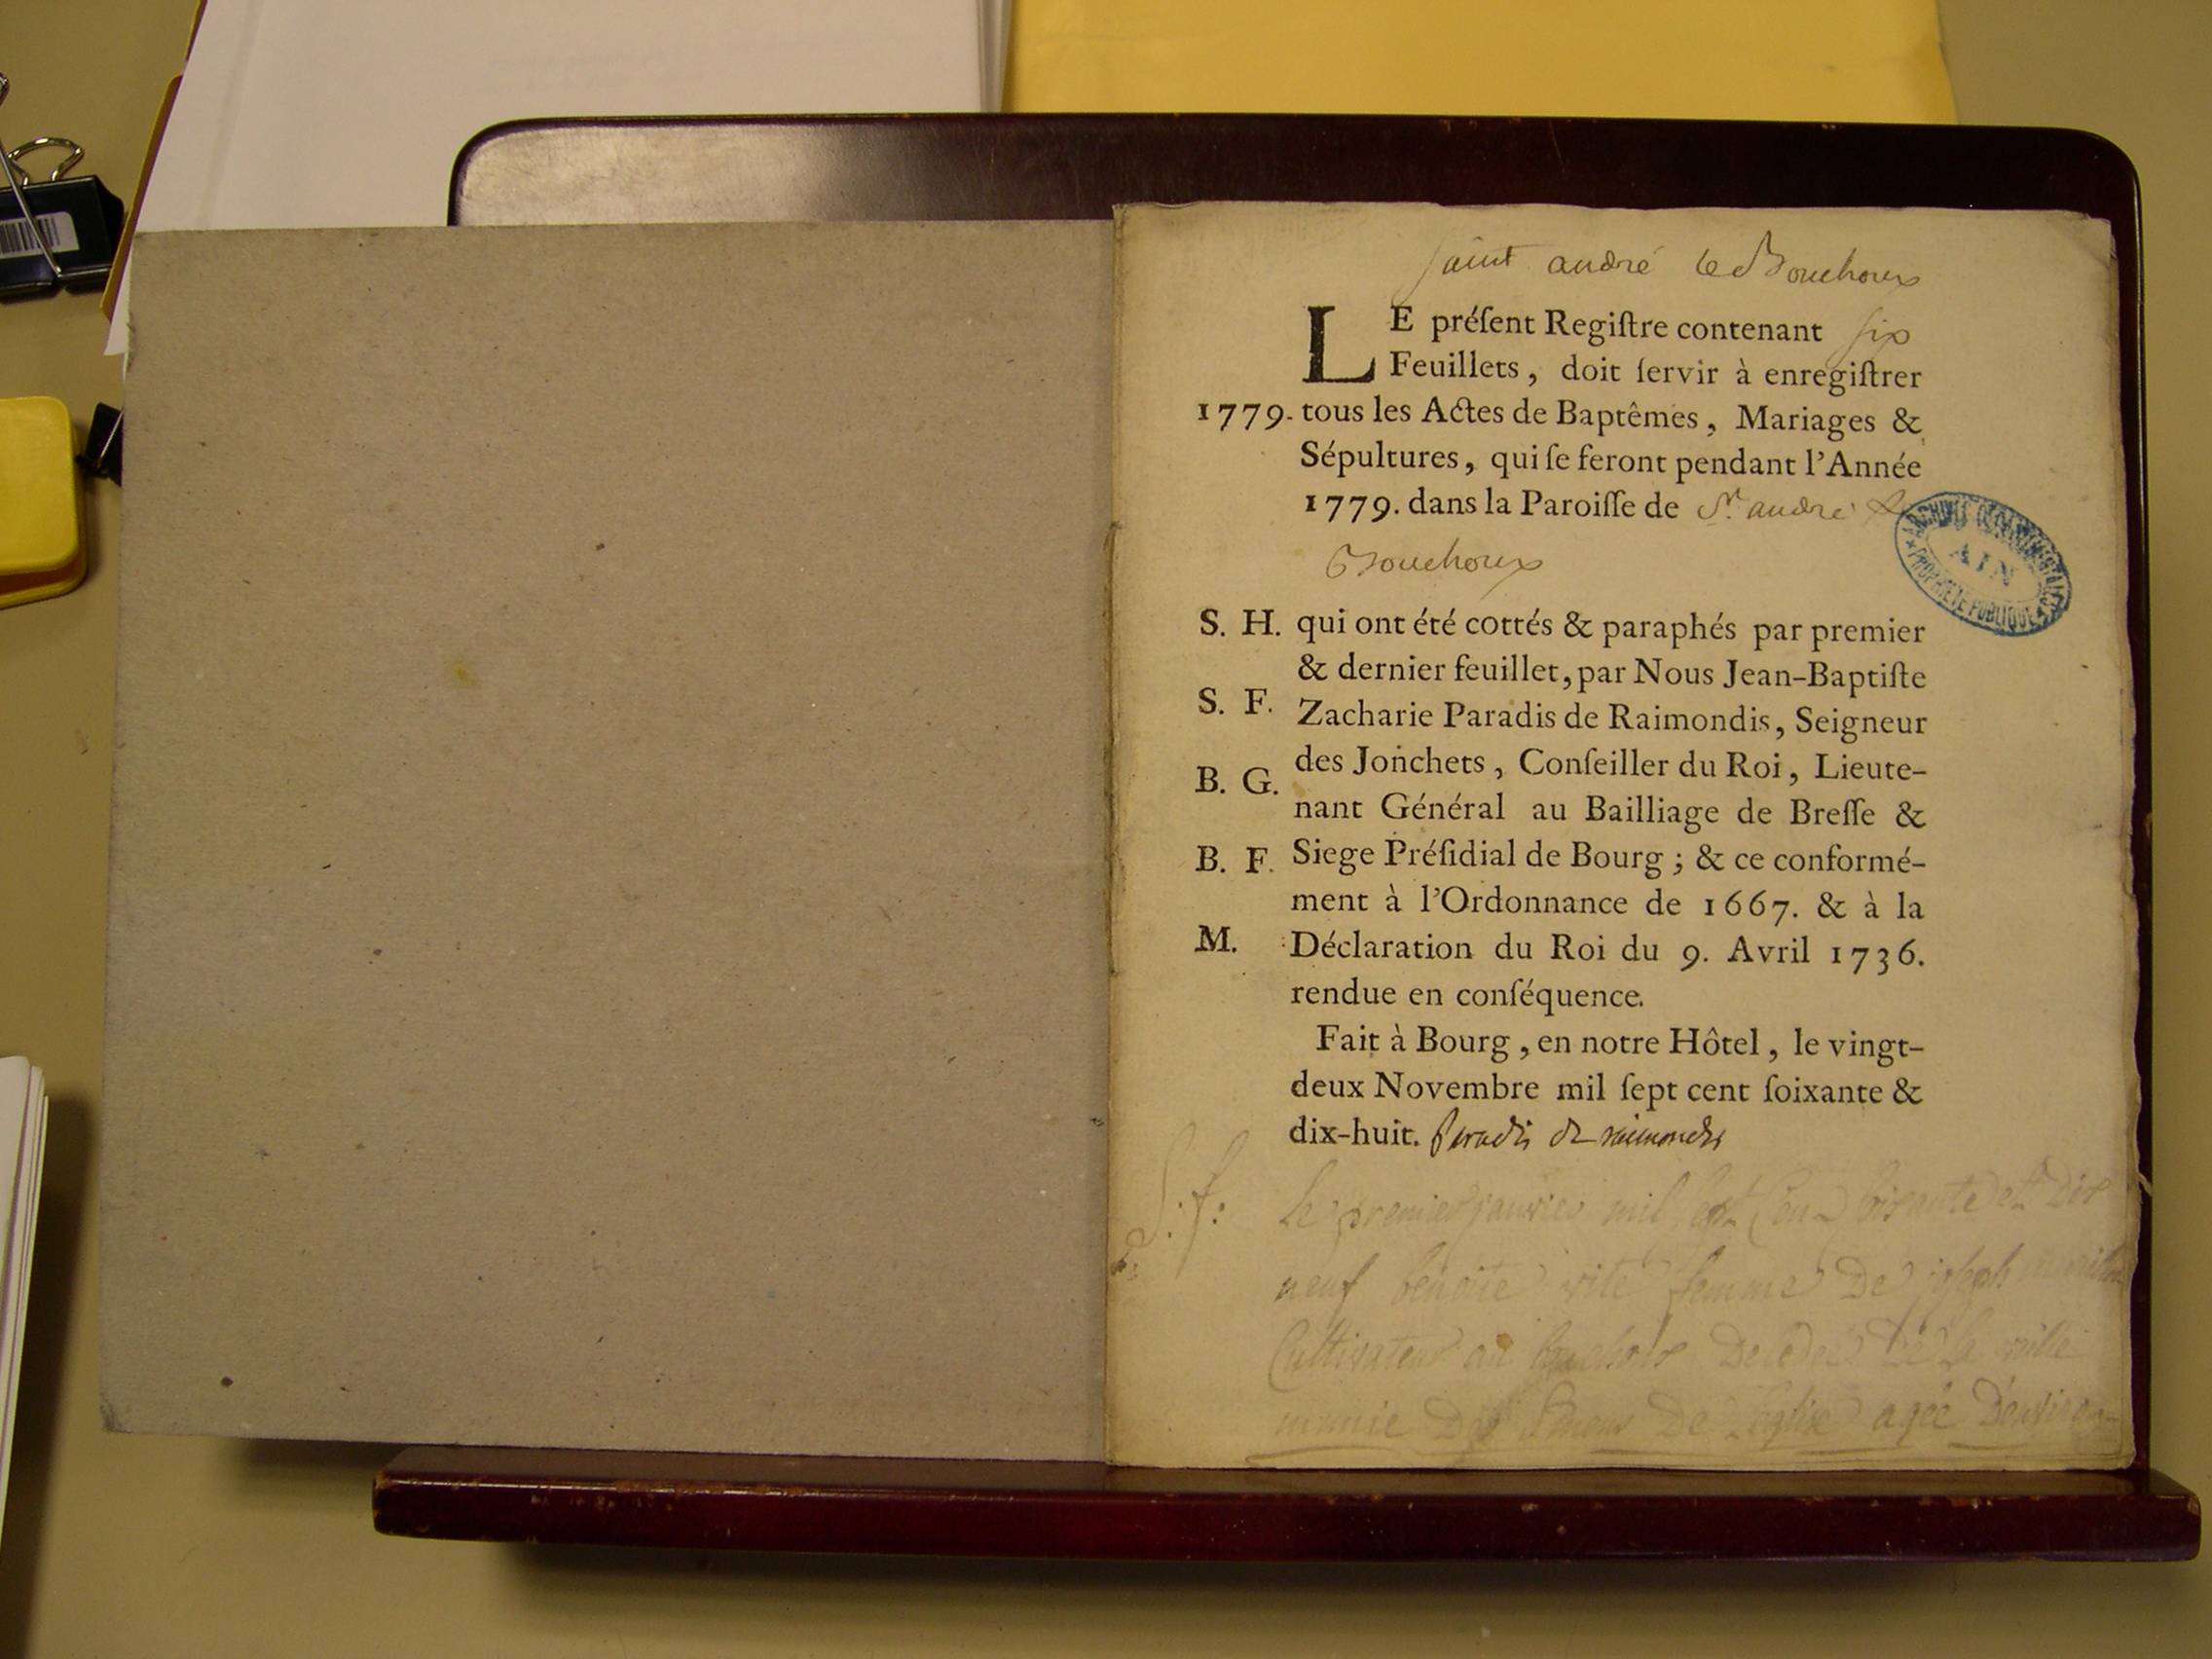 saint andré le Bouchoux
LE préſent Regiſtre contenant six
Feuillets, doit ſervir à enregiſtrer
1779. tous les Actes de Baptêmes, Mariages &
Sépultures, qui ſe feront pendant l'Année
1779. dans la Paroiſſe de St. andré le
Bouchoux
S. H. qui ont été cottés & paraphés par premier
& dernier feuillet, par Nous Jean-Baptiſte
S. F. Zacharie Paradis de Raimondis, Seigneur
des Jonchets, Conſeiller du Roi, Lieute-
B. G. nant Général au Bailliage de Breſſe &
B. F. Siege Préſidial de Bourg ; & ce conformé-
ment à l'Ordonnance de 1667. & à la
M. Déclaration du Roi du 9. Avril 1736.
rendue en conſéquence.
Fait à Bourg, en notre Hôtel, le vingt-
deux Novembre mil ſept cent ſoixante &
dix-huit. Paradis de raimondis
S. f: Le premier janvier mil sept cent soixante et dix
neuf benoite vite femme De joseph
Cultivateur au bouchoux
munie Des Sacrements De L'église agée D'environ
ARCHIVES DÉPARTEMENTALES
AIN
PROPRIÉTÉ PUBLIQUE